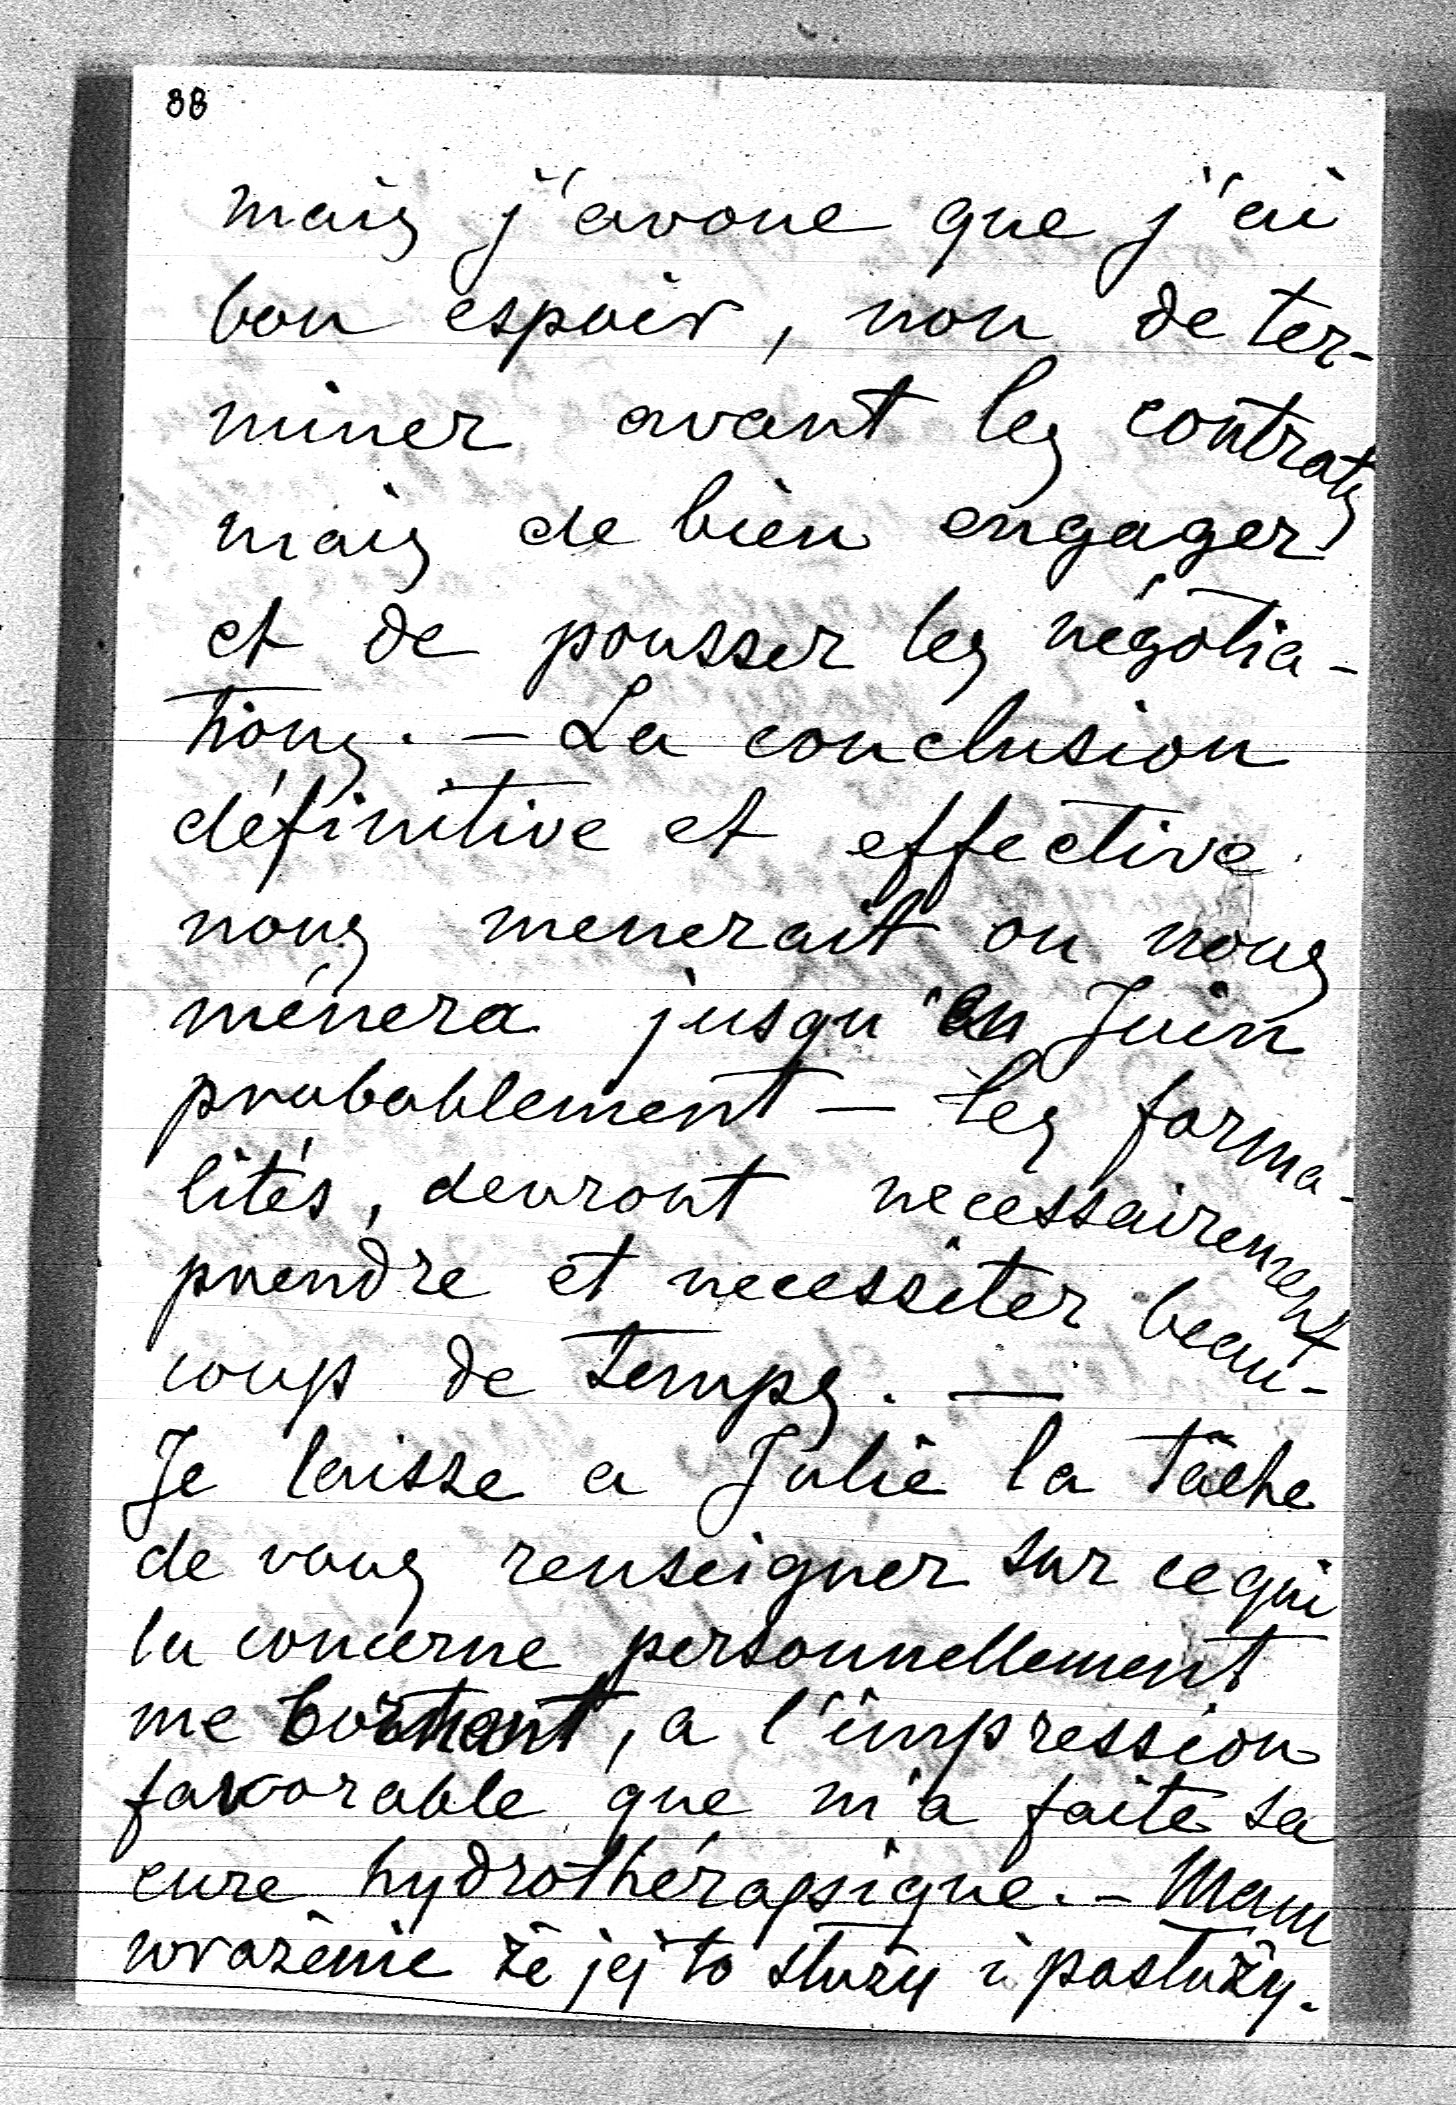 88
mais j'avoue que j'ai
bon espoir, non de ter-
miner avant les contrats
mais de bien engager
et de pousser les négotia-
tions. - La conclusion
définitive et effective
nous menerait ou nous
ménera jusqu'en Juin
probablement — les forma-
lités, devront necessairement
prendre et necessiter beau-
coup de temps. —
Je laisse a Julie la tâche
de vous renseigner sur ce qui
la concerne personnellement
me bornant, a l'impression
favorable que m'a faite sa
cure hydrothérapique. - Mam
wrażenie że jej to służy i posłuży.